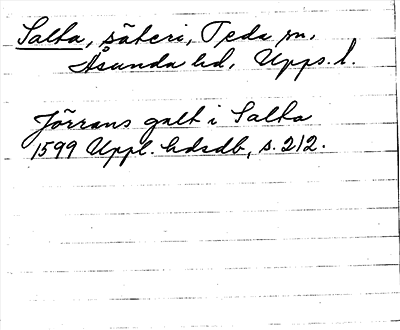 Salta, säteri, Teda sn,
Åsunda hd, Upps. l.
Jörrans galt i Salta
1599 Uppl. hdsdb, s. 212.